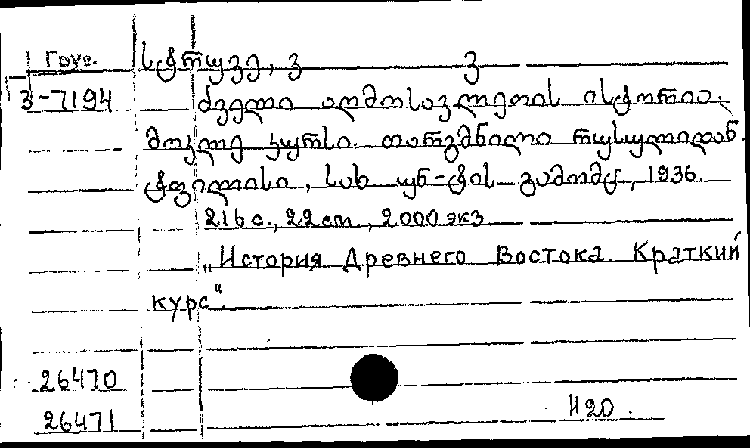 Груз.
სტრუვე, ვ ვ
3-7194
ძველი აღმოსავლეთის ისტორია.
მოკლე კურსი. თარგმნილი რუსულიდან.
ტფილისი, სახ. უნ-ტის გამომც., 1936.
216 с., 22 cm, 2000 экз
„История Древнего Востока. Краткий
курс“.
26470
26471
Н20.